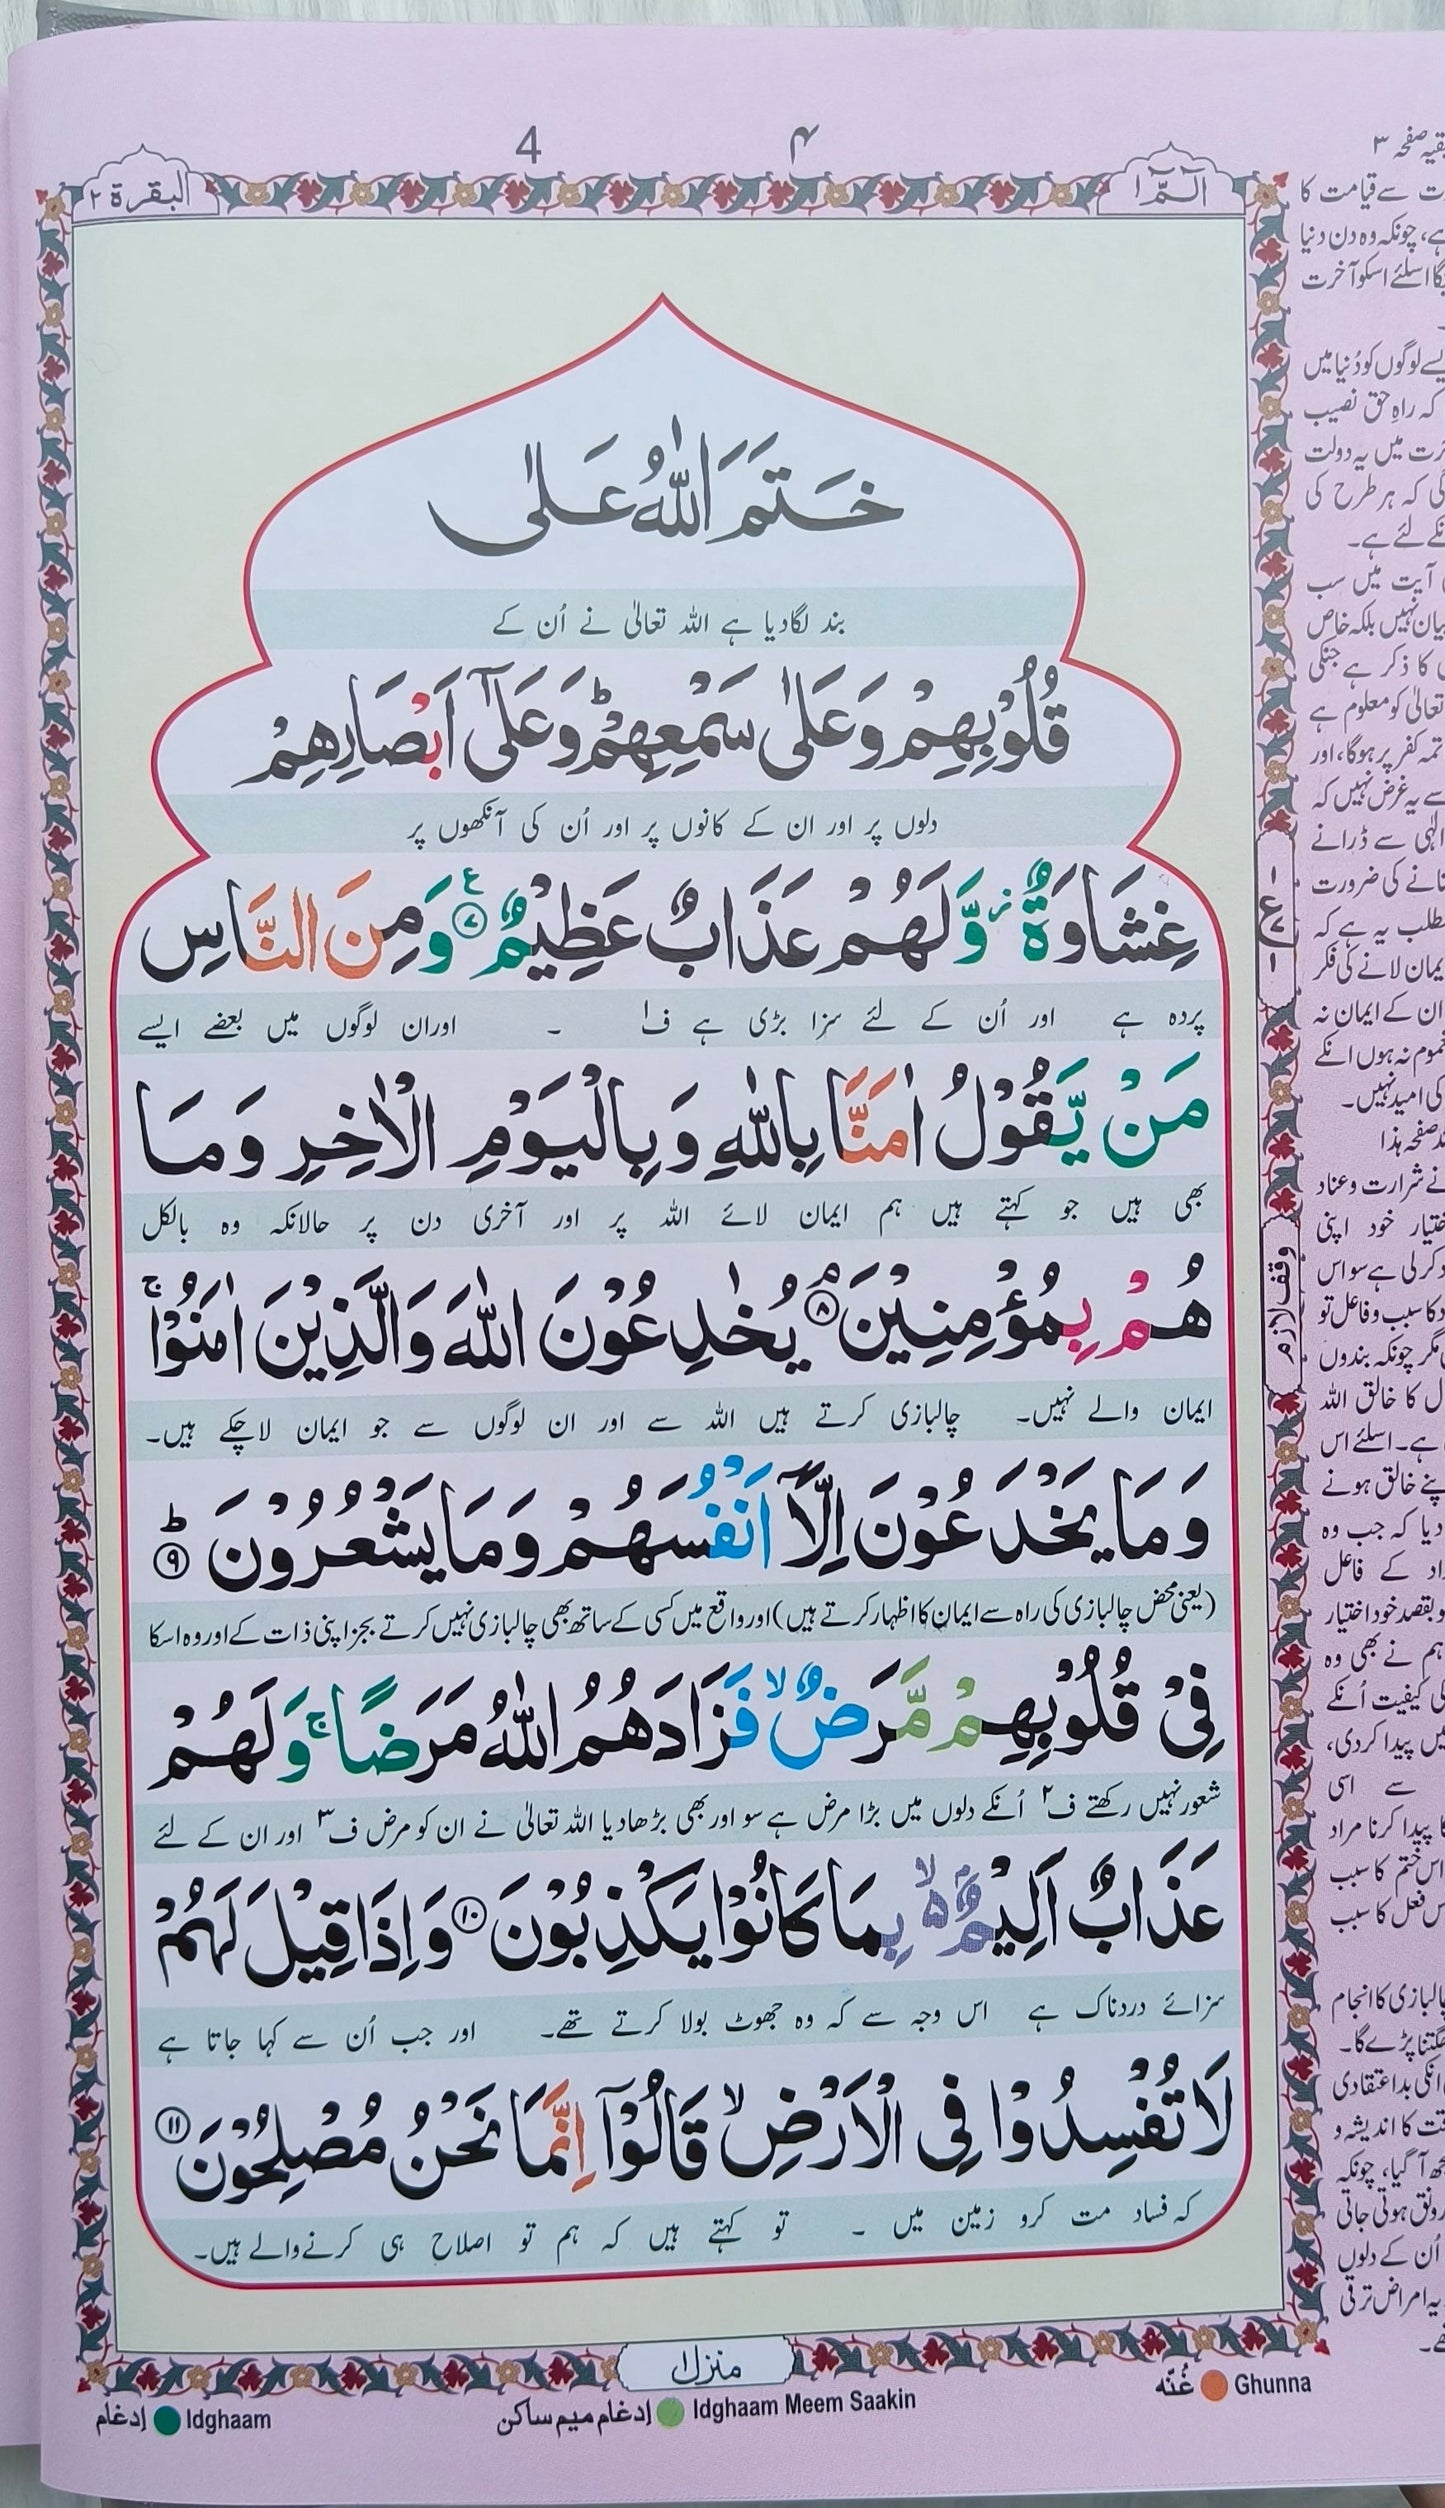 4 ۴
الٓمّٓ ۱
البقرة ۲
خَتَمَ اللّٰهُ عَلٰی
بند لگادیا ہے اللہ تعالیٰ نے اُن کے
قُلُوْبِهِمْ وَعَلٰی سَمْعِهِمْ ؕ وَعَلٰۤی اَبْصَارِهِمْ
دلوں پر اور ان کے کانوں پر اور اُن کی آنکھوں پر
غِشَاوَةٌ ؗ وَّلَهُمْ عَذَابٌ عَظِیْمٌ ۷ ع وَمِنَ النَّاسِ
پردہ ہے اور اُن کے لئے سزا بڑی ہے ف۱ ۔ اوران لوگوں میں بعضے ایسے
مَنْ یَّقُوْلُ اٰمَنَّا بِاللّٰهِ وَبِالْیَوْمِ الْاٰخِرِ وَمَا
بھی ہیں جو کہتے ہیں ہم ایمان لائے اللہ پر اور آخری دن پر حالانکہ وہ بالکل
هُمْ بِمُؤْمِنِیْنَ ۘ ۸ یُخٰدِعُوْنَ اللّٰهَ وَالَّذِیْنَ اٰمَنُوْا ۚ
ایمان والے نہیں۔ چالبازی کرتے ہیں اللہ سے اور ان لوگوں سے جو ایمان لاچکے ہیں۔
وَمَا یَخْدَعُوْنَ اِلَّاۤ اَنْفُسَهُمْ وَمَا یَشْعُرُوْنَ ؕ ۹
(یعنی محض چالبازی کی راہ سے ایمان کا اظہار کرتے ہیں) اور واقع میں کسی کے ساتھ بھی چالبازی نہیں کرتے بجز اپنی ذات کے اور وہ اسکا
فِیْ قُلُوْبِهِمْ مَّرَضٌ ۙ فَزَادَهُمُ اللّٰهُ مَرَضًا ۚ وَلَهُمْ
شعور نہیں رکھتے ف۲ اُنکے دلوں میں بڑا مرض ہے سو اور بھی بڑھادیا اللہ تعالیٰ نے ان کو مرض ف۳ اور ان کے لئے
عَذَابٌ اَلِیْمٌۢ ۙ۵ بِمَا كَانُوْا یَكْذِبُوْنَ ۱۰ وَاِذَا قِیْلَ لَهُمْ
سزائے دردناک ہے اس وجہ سے کہ وہ جھوٹ بولا کرتے تھے۔ اور جب اُن سے کہا جاتا ہے
لَا تُفْسِدُوْا فِی الْاَرْضِ ۙ قَالُوْۤا اِنَّمَا نَحْنُ مُصْلِحُوْنَ ۱۱
کہ فساد مت کرو زمین میں ۔ تو کہتے ہیں کہ ہم تو اصلاح ہی کرنے والے ہیں۔
منزل ۱
ع
۱
۷
۱
وقف لازم
صفحہ ۳
سے قیامت کا
ہے، چونکہ وہ دن دنیا
اسلئے اسکو آخرت
لوگوں کو دُنیا میں
کہ راہِ حق نصیب
میں یہ دولت
کہ ہر طرح کی
لئے ہے۔
آیت میں سب
نہیں بلکہ خاص
کا ذکر ہے جنکی
تعالیٰ کو معلوم ہے
کفر پر ہوگا، اور
سے یہ غرض نہیں کہ
الٰہی سے ڈرانے
کی ضرورت
مطلب یہ ہے کہ
ایمان لانے کی فکر
ان کے ایمان نہ
نہ ہوں انکے
کی امید نہیں۔
صفحہ ہذا
نے شرارت و عناد
خود اپنی
کرلی ہے سو اس
کا سبب و فاعل تو
مگر چونکہ بندوں
کا خالق اللہ
ہے۔ اسلئے اس
خالق ہونے
دیا کہ جب وہ
کے فاعل
بقصد خود اختیار
ہم نے بھی وہ
کیفیت اُنکے
میں پیدا کردی،
سے اسی
پیدا کرنا مراد
اس ختم کا سبب
فعل کا سبب
چالبازی کا انجام
پڑے گا۔
انکی بداعتقادی
کا اندیشہ و
آ گیا، چونکہ
رونق ہوتی جاتی
اُن کے دلوں
یہ امراض ترقی
غُنّه Ghunna
إدغام میم ساکن Idghaam Meem Saakin
إدغام Idghaam